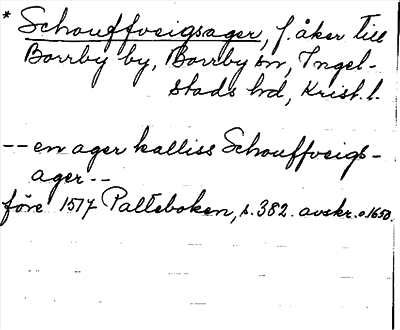 * Schouffveigsager, f. åker till
Borrby by, Borrby sn, Ingel-
stads hd, Krist. l.
-- en ager kalliss Schouffveigs-
ager --
före 1517 Palteboken, s. 382. avskr. o. 1650.